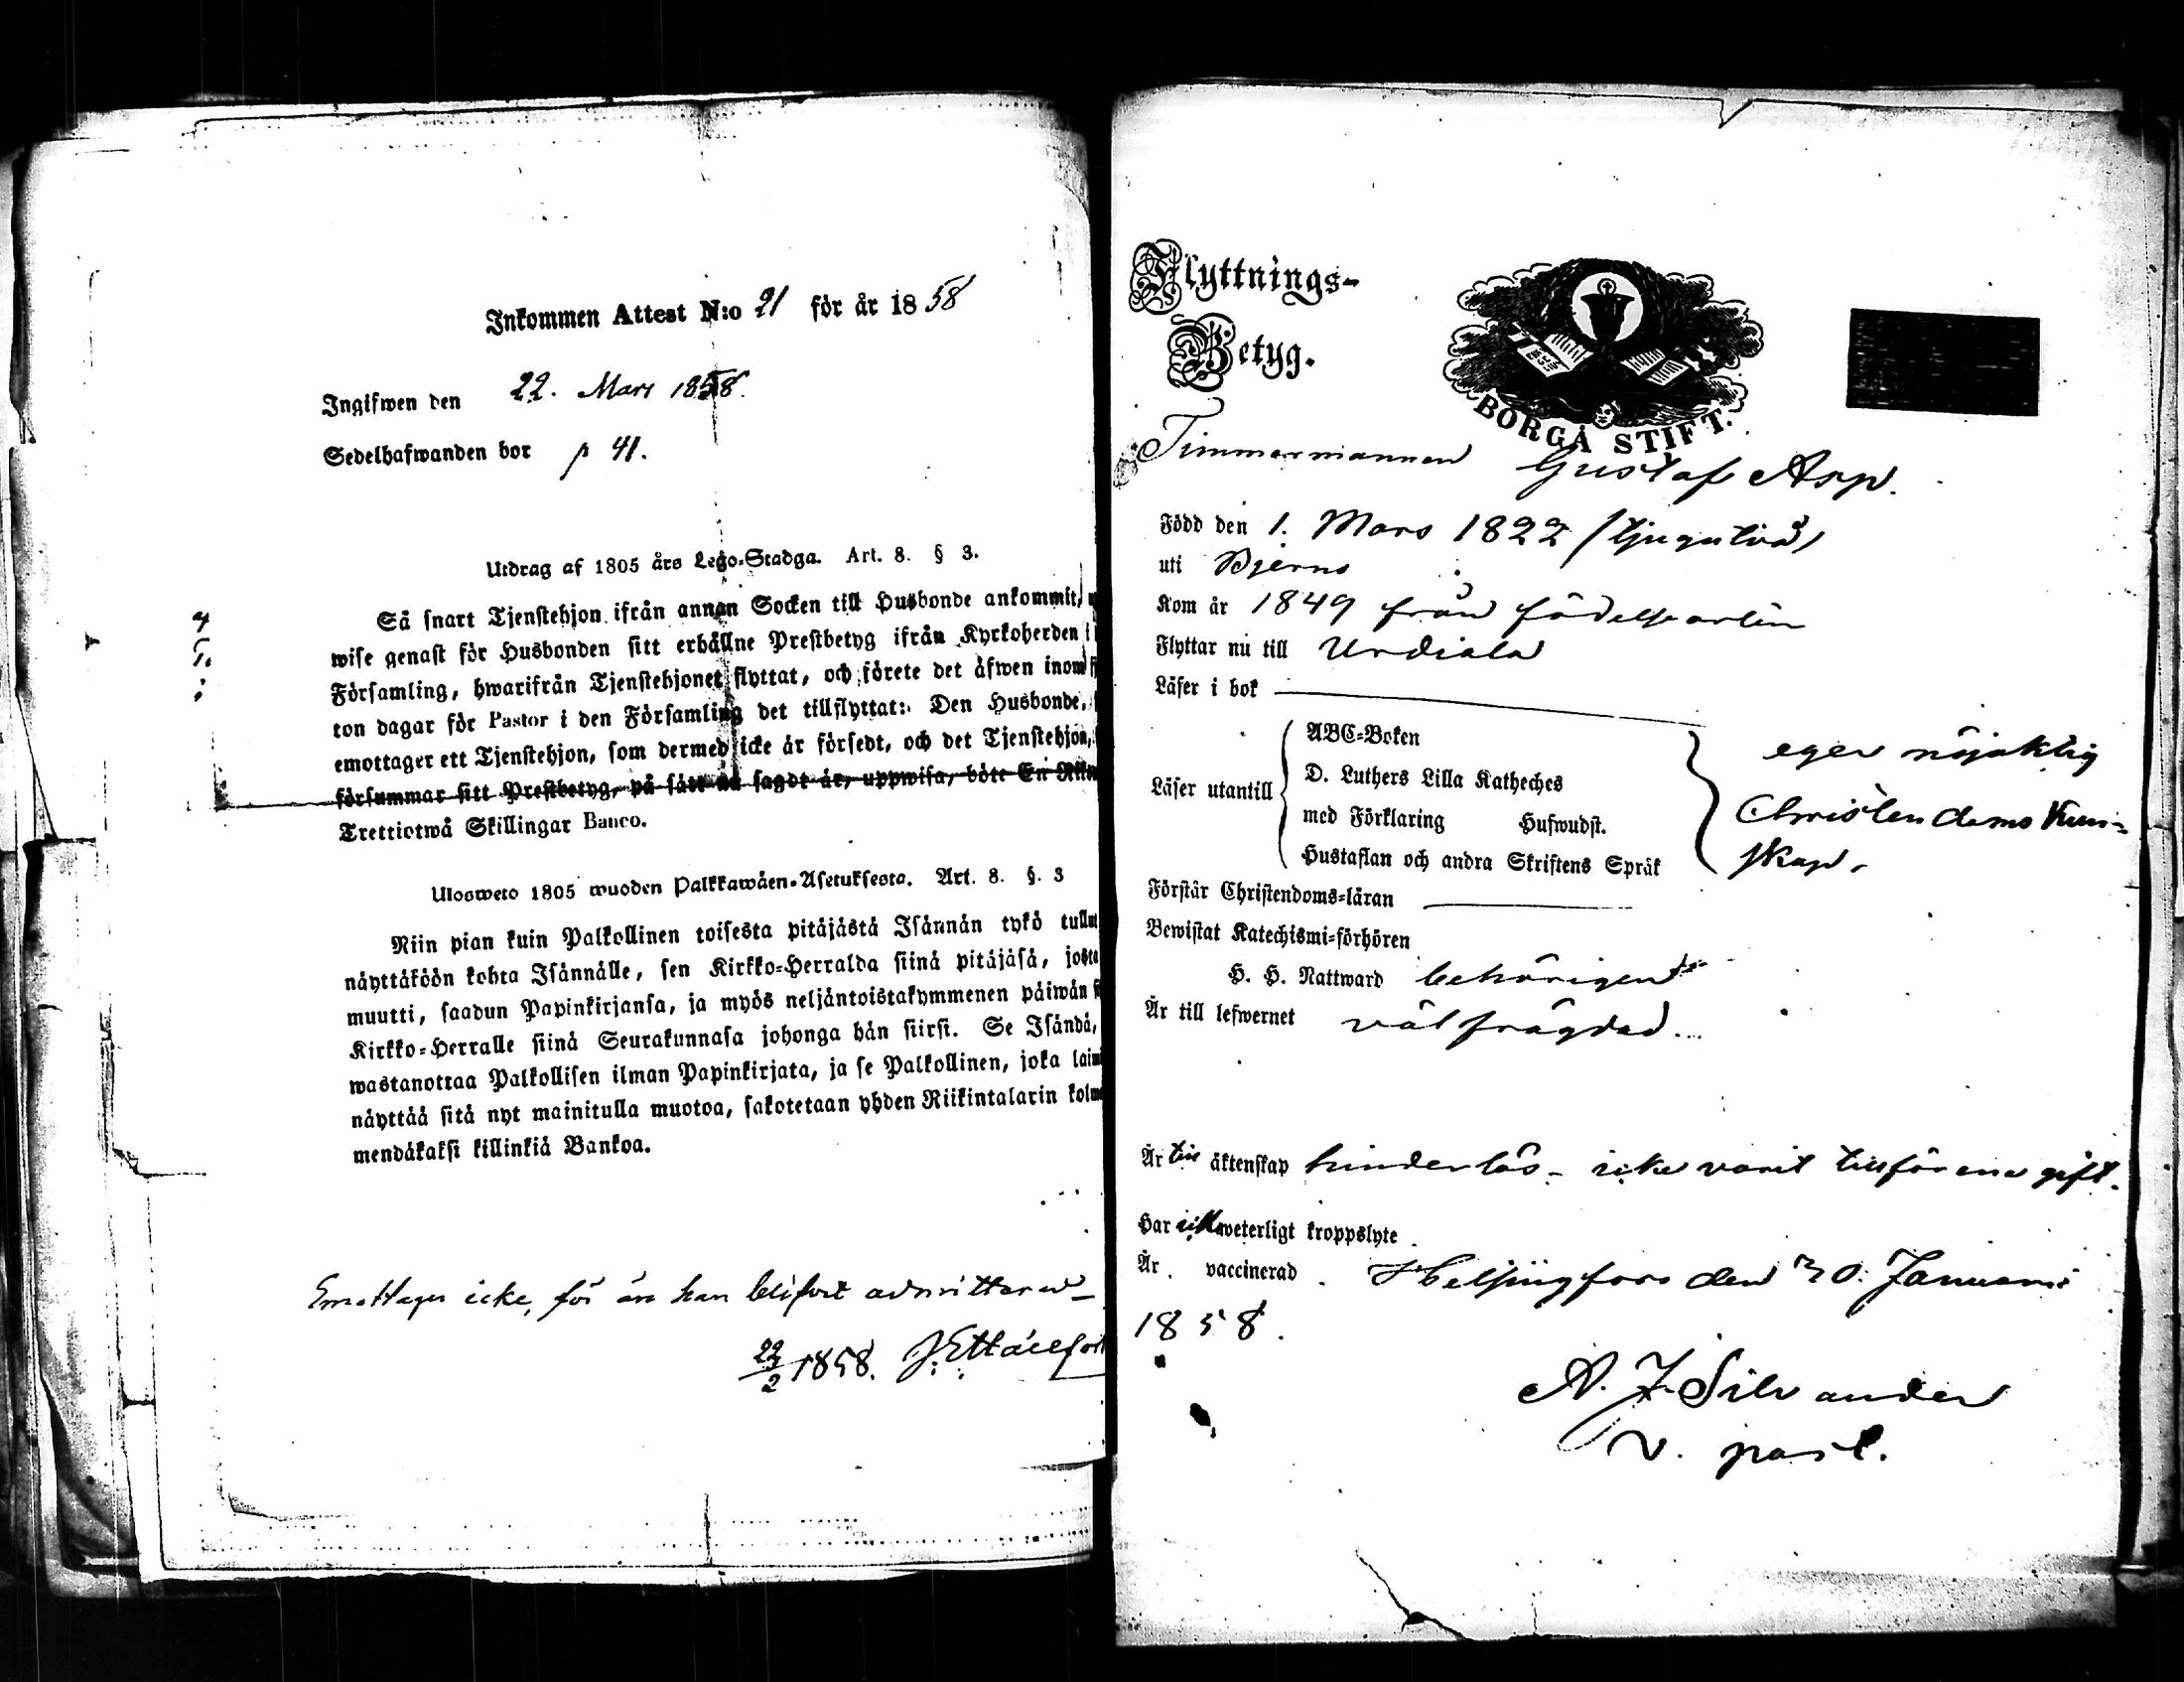 Inkommen Attest N:o 21 för år 1858
Ingifwen den 22. Mars 1858.
Sedelhafwanden bor p 41.
Utdrag af 1805 års Lego-Stadga. Art. 8. § 3.
Så snart Tjenstehjon ifrån annan Socken till Husbonde ankommit,
wise genast för Husbonden sitt erhållne Prestbetyg ifrån Kyrkoherden i
Församling, hwarifrån Tjenstehjonet flyttat, och förete det äfwen inom
ton dagar för Pastor i den Församling det tillflyttat: Den Husbonde,
emottager ett Tjenstehjon, som dermed icke är försedt, och det Tjenstehjon,
försummar sitt Prestbetyg, på sätt nu sagdt är, uppwisa, böte En
Trettiotwå Skillingar Banco.
Ulosweto 1805 wuoden Palkkawäen-Asetuksesta. Art. 8. §. 3
Niin pian kuin Palkollinen toisesta pitäjästä Isännän tykö
näyttäköön kohta Isännälle, sen Kirkko-Herralda siinä pitäjäsä,
muutti, saadun Papinkirjansa, ja myös neljäntoistakymmenen päiwän
Kirkko-Herralle siinä Seurakunnasa johonga hän siirsi. Se Isändä,
wastanottaa Palkollisen ilman Papinkirjata, ja se Palkollinen, joka
näyttää sitä nyt mainitulla muotoa, sakotetaan yhden Riikintalarin
mendäkaksi killinkiä Bankoa.
Emottages icke, för än han blifvit admitterad
22/2 1858.
Flyttnings-
Betyg.
BORGÅ STIFT.
Timmermannen Gustaf Asp.
Född den 1. Mars 1822 /tjugutvå/
uti Bjerno
Kom år 1849 från födelseorten
Flyttar nu till Urdiala
Läser i bok
Läser utantill
ABC-Boken
D. Luthers Lilla Katheches
med Förklaring Hufwudst.
Hustaflan och andra Skriftens Språk
eger nöjaktig
Christendoms kun-
skap.
Förstår Christendoms-läran
Bewistat Katechismi-förhören
H. H. Nattward behörigen
Är till lefwernet välfrägdad.
Är till äktenskap hinderlös - icke varit tillförene gift.
Har weterligt kroppslyte
Är vaccinerad. Helsingfors den 30. Januari
1858.
A. J. Silvander
v. past.